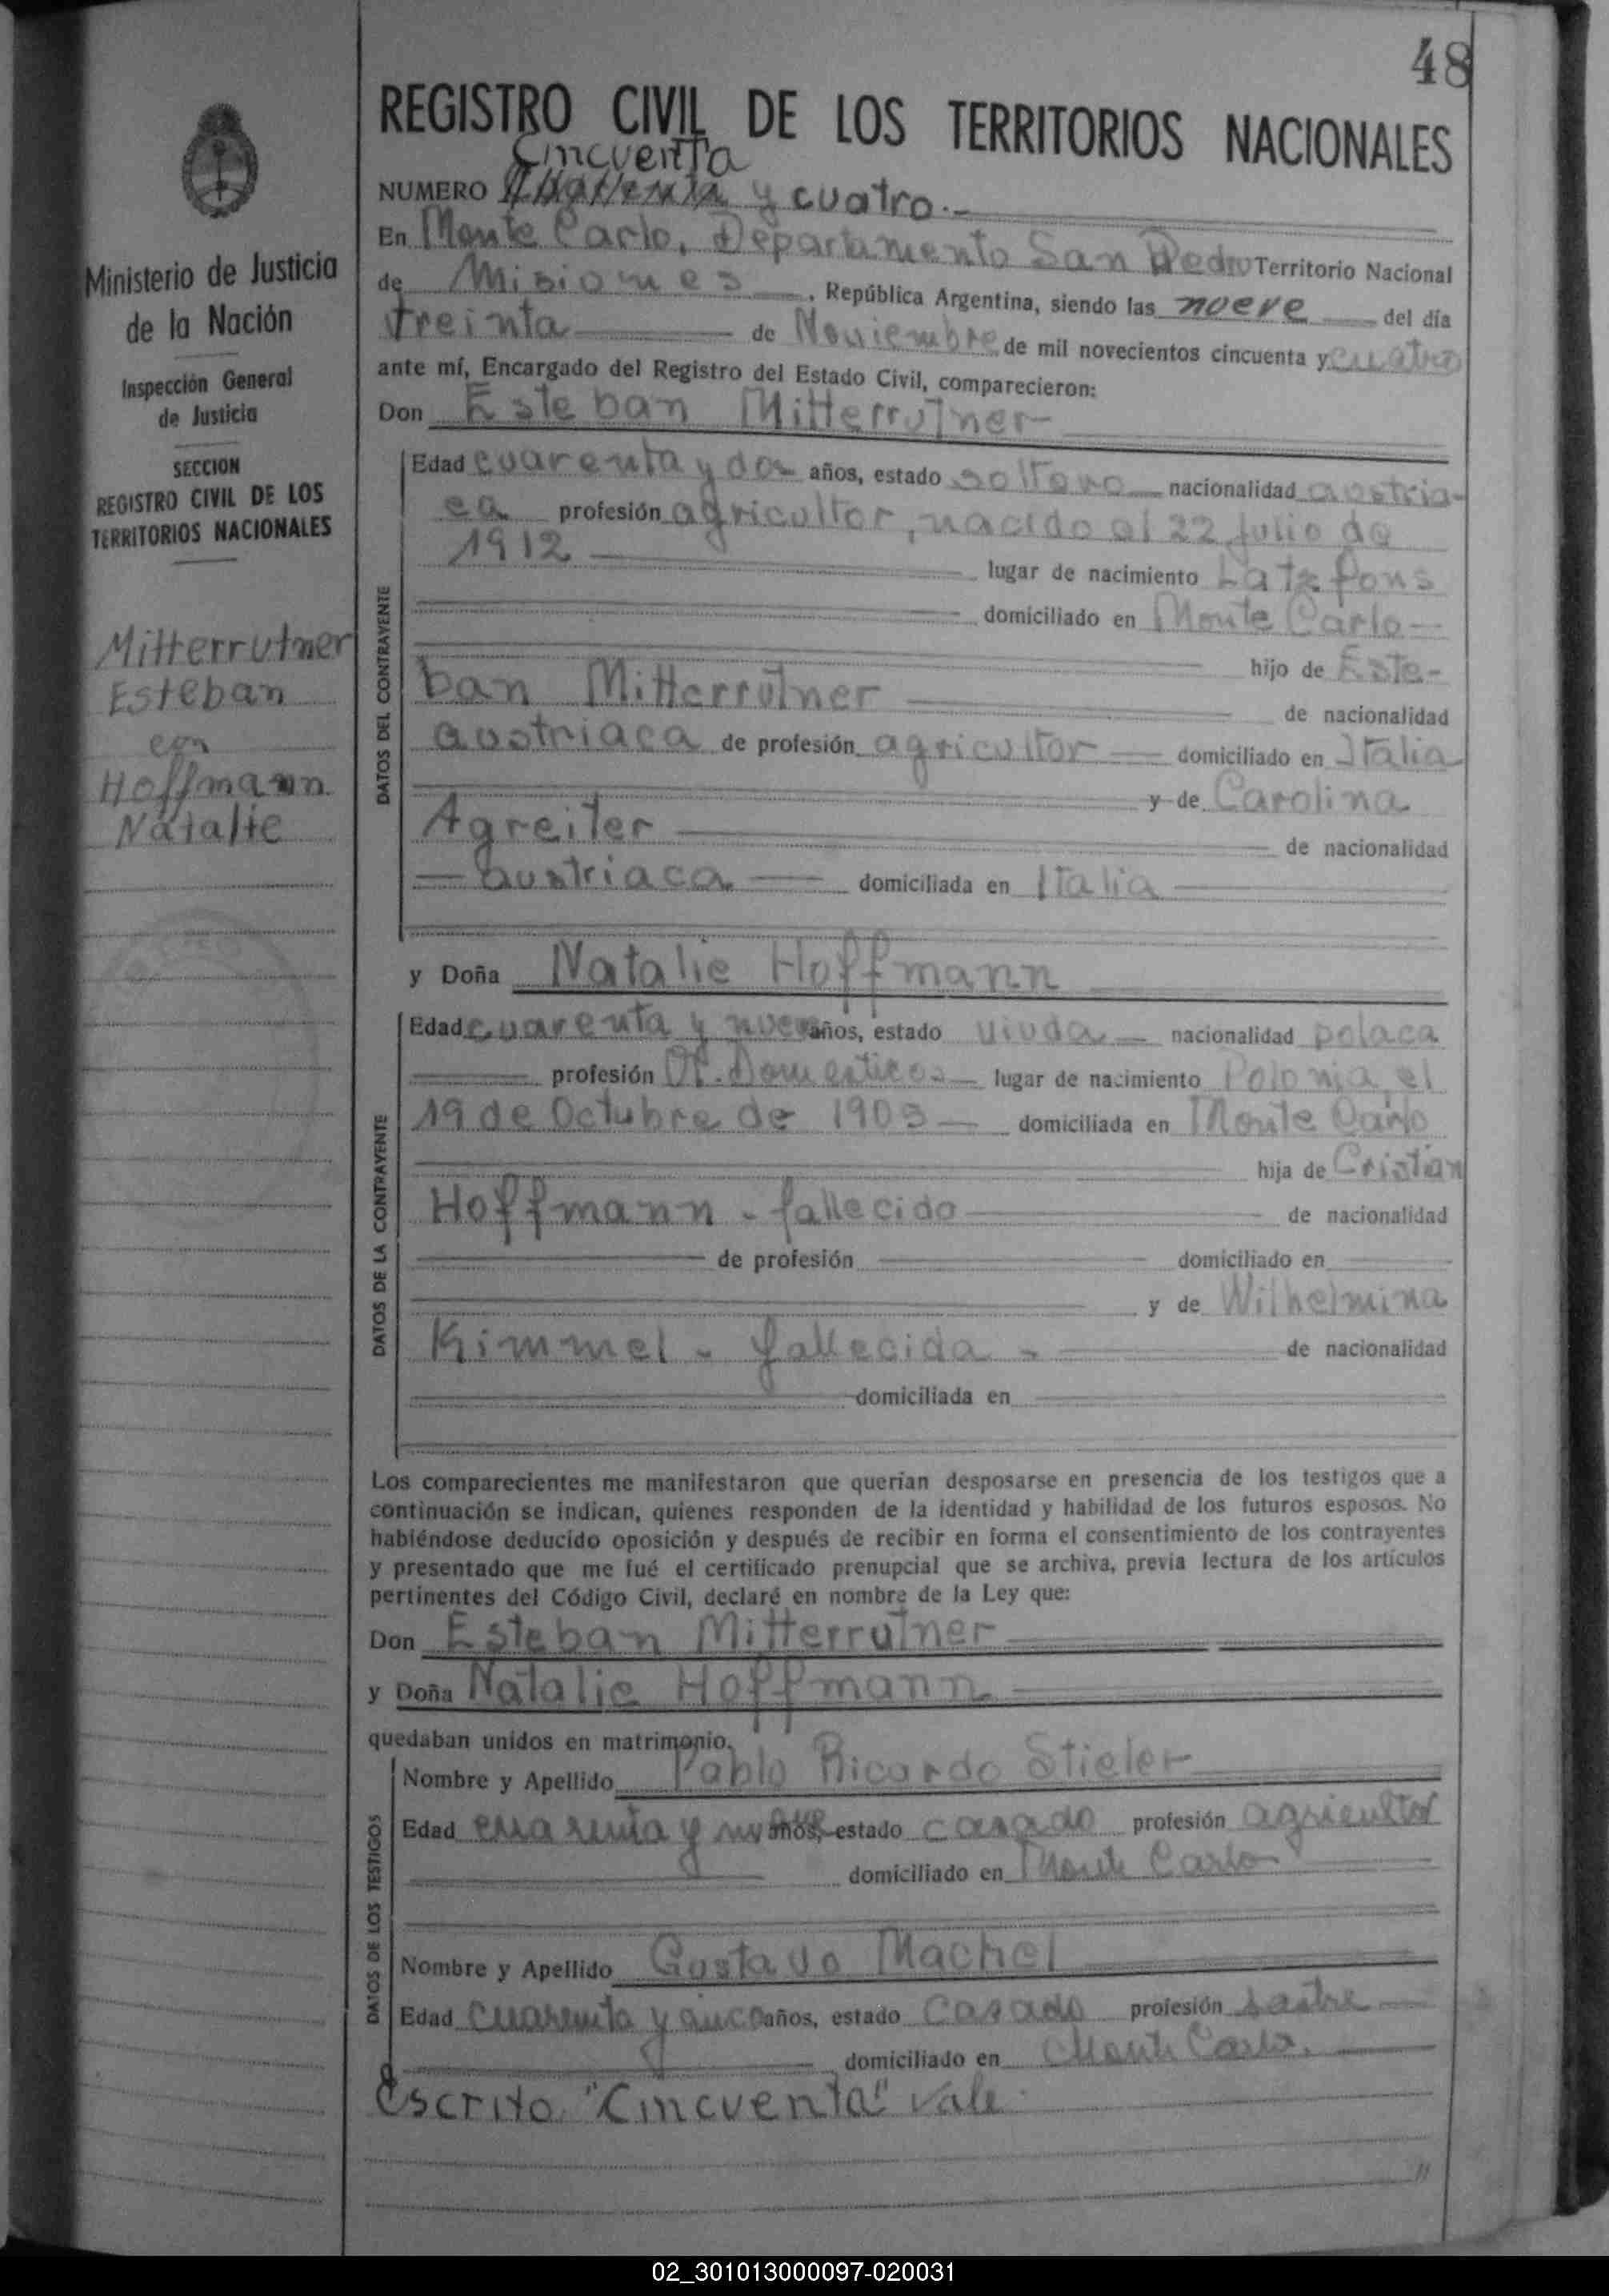 48
REGISTRO CIVIL DE LOS TERRITORIOS NACIONALES
Cincuenta
NUMERO y cuatro.-
En Monte Carlo, Departamento San Pedro Territorio Nacional
de Misiones, República Argentina, siendo las nueve del día
treinta de Noviembre de mil novecientos cincuenta y cuatro
ante mí, Encargado del Registro del Estado Civil, comparecieron:
Don Esteban Mitterrutner
Edad cuarenta y dos años, estado soltero nacionalidad austria-
ca profesión agricultor, nacido el 22 julio de
1912 lugar de nacimiento Latzfons
domiciliado en Monte Carlo
hijo de Este-
ban Mitterrutner de nacionalidad
austriaca de profesión agricultor domiciliado en Italia
y de Carolina
Agreiter de nacionalidad
austriaca domiciliada en Italia
DATOS DEL CONTRAYENTE
y Doña Natalie Hoffmann
Edad cuarenta y nueve años, estado viuda nacionalidad polaca
profesión Of. Domesticos lugar de nacimiento Polonia, el
19 de Octubre de domiciliada en Monte Carlo
hija de Cristian
Hoffmann - fallecido de nacionalidad
de profesión domiciliado en
y de Wilhelmina
Kimmel - fallecida - de nacionalidad
domiciliada en
DATOS DE LA CONTRAYENTE
Los comparecientes me manifestaron que querían desposarse en presencia de los testigos que a
continuación se indican, quienes responden de la identidad y habilidad de los futuros esposos. No
habiéndose deducido oposición y después de recibir en forma el consentimiento de los contrayentes
y presentado que me fué el certificado prenupcial que se archiva, previa lectura de los artículos
pertinentes del Código Civil, declaré en nombre de la Ley que:
Don Esteban Mitterrutner
y Doña Natalie Hoffmann
quedaban unidos en matrimonio.
Nombre y Apellido Pablo Ricardo Stieler
Edad cuarenta y nueve años, estado casado profesión agricultor
domiciliado en Monte Carlo
Nombre y Apellido Gustavo Machel
Edad cuarenta y cinco años, estado casado profesión sastre
domiciliado en Monte Carlo.
DATOS DE LOS TESTIGOS
Escrito "Cincuenta" vale.
Ministerio de Justicia
de la Nación
Inspección General
de Justicia
SECCION
REGISTRO CIVIL DE LOS
TERRITORIOS NACIONALES
Mitterrutner
Esteban
con
Hoffmann
Natalie
02_301013000097-020031